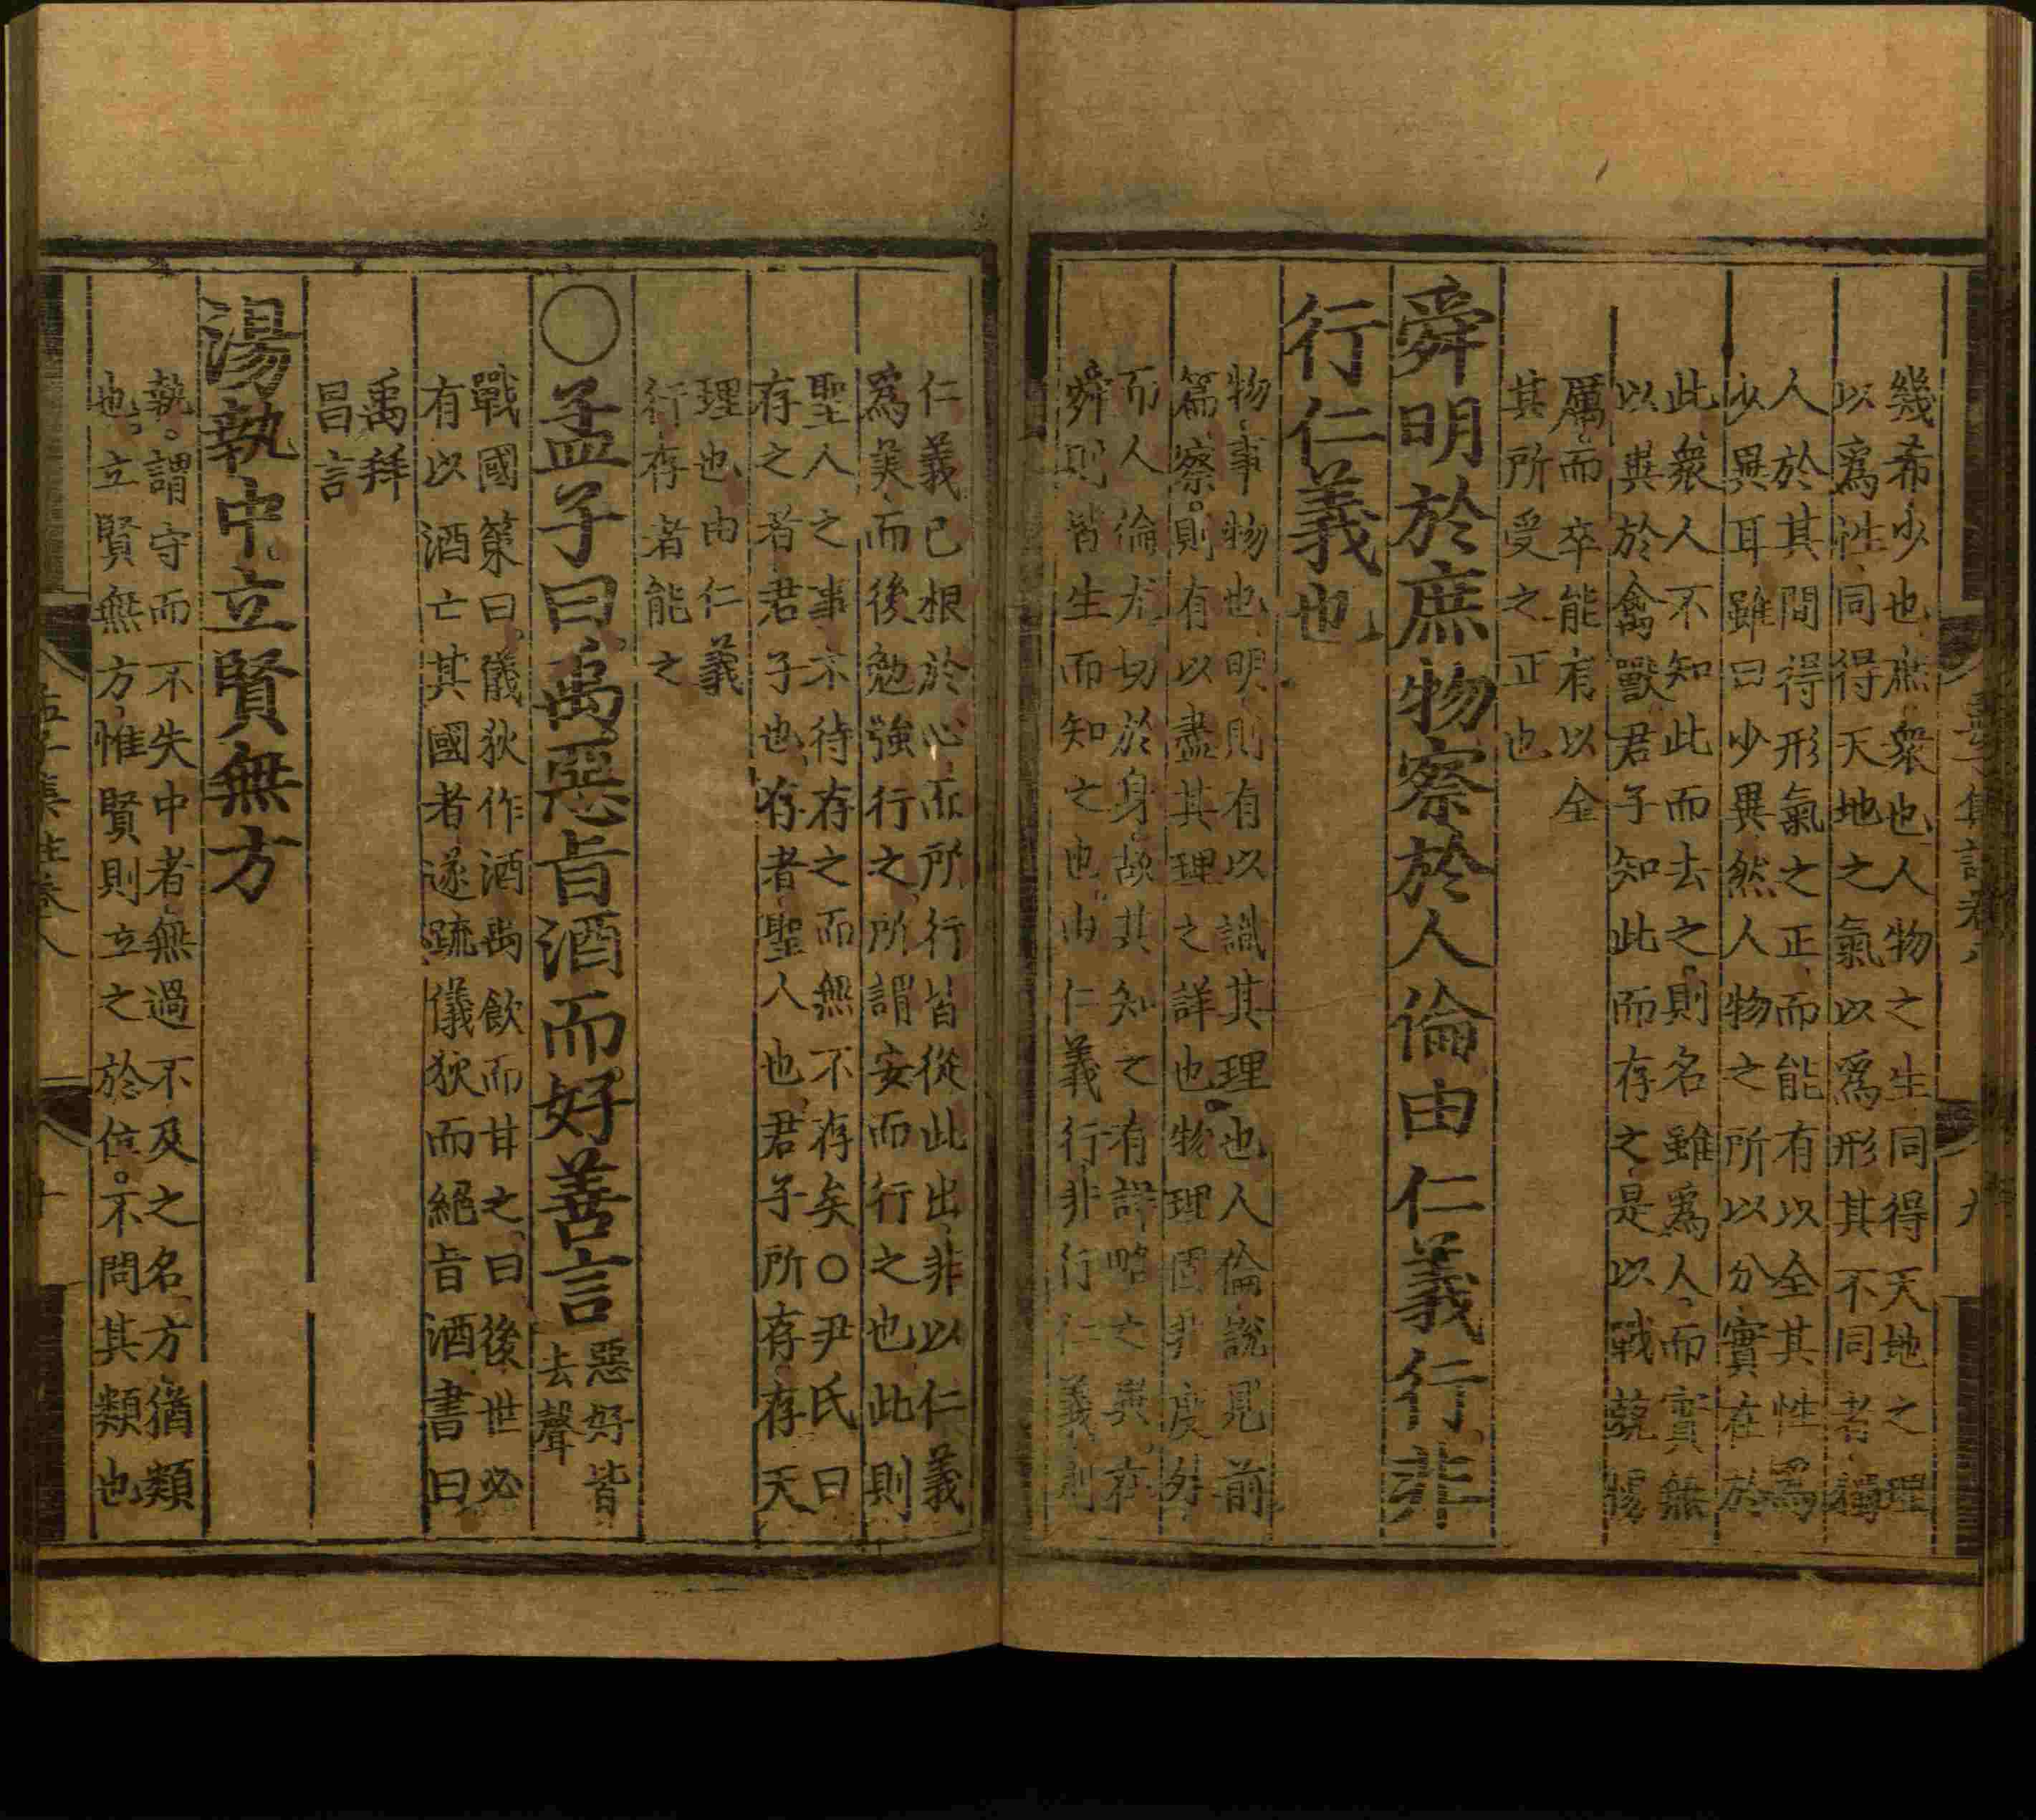 幾希少也庶衆也人物之生同得天地之理
以爲性同得天地之氣以爲形其不同者獨
人於其間得形氣之正而能有以全其性爲
少異耳雖曰少異然人物之所以分實在於
此衆人不知此而去之則名雖爲人而實無
以異於禽獸君子知此而存之是以戰兢惕
厲而卒能有以全
其所受之正也
舜明於庶物察於人倫由仁義行非
行仁義也
物事物也明則有以識其理也人倫說見前
篇察則有以盡其理之詳也物理固非度外
而人倫尤切於身故其知之有詳略之異在
舜則皆生而知之也由仁義行非行仁義則
仁義已根於心而所行皆從此出非以仁義
爲美而後勉強行之所謂安而行之也此則
聖人之事不待存之而無不存矣○尹氏曰
存之者君子也存者聖人也君子所存存天
理也由仁義
行存者能之
○孟子曰禹惡旨酒而好善言
惡好皆
去聲
戰國策曰儀狄作酒禹飲而甘之曰後世必
有以酒亡其國者遂疏儀狄而絕旨酒書曰
禹拜
昌言
湯執中立賢無方
執謂守而不失中者無過不及之名方猶類
也立賢無方惟賢則立之於位不問其類也
孟子集註卷八
十